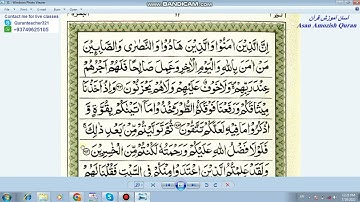 Windows Photo Viewer
BANDICAM.COM
Contact me for live classes
Quranteacher321
+93749625105
آسان آموزش قرآن
Asan Amozish Quran
اِنَّ الَّذِيْنَ اٰمَنُوْا وَالَّذِيْنَ هَادُوْا وَالنَّصٰرٰى وَالصّٰبِـِٕيْنَ
مَنْ اٰمَنَ بِاللّٰهِ وَالْيَوْمِ الْاٰخِرِ وَعَمِلَ صَالِحًا فَلَهُمْ اَجْرُهُمْ
عِنْدَ رَبِّهِمْ وَلَا خَوْفٌ عَلَيْهِمْ وَلَا هُمْ يَحْزَنُوْنَ وَاِذْ اَخَذْنَا
مِيْثَاقَكُمْ وَرَفَعْنَا فَوْقَكُمُ الطُّوْرَ خُذُوْا مَآ اٰتَيْنٰكُمْ بِقُوَّةٍ وَّ
اذْكُرُوْا مَا فِيْهِ لَعَلَّكُمْ تَتَّقُوْنَ ثُمَّ تَوَلَّيْتُمْ مِّنْۢ بَعْدِ ذٰلِكَ
فَلَوْلَا فَضْلُ اللّٰهِ عَلَيْكُمْ وَرَحْمَتُهٗ لَكُنْتُمْ مِّنَ الْخٰسِرِيْنَ
وَلَقَدْ عَلِمْتُمُ الَّذِيْنَ اعْتَدَوْا مِنْكُمْ فِى السَّبْتِ فَقُلْنَا لَهُمْ